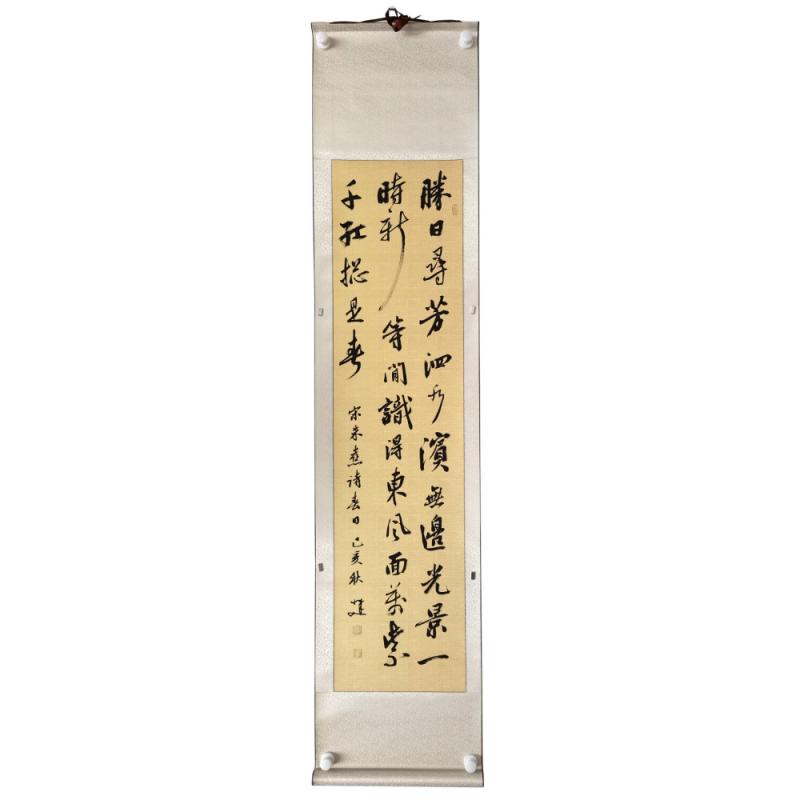 勝日尋芳泗水濱無邊光景一
時新等閒識得東風面萬紫
千紅揔是春
宋朱熹詩春日己亥秋